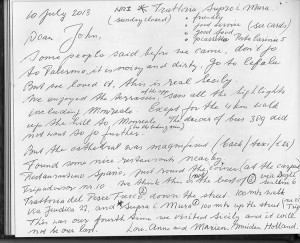 10 July 2013
NR1 * Trattoria Supra i Mura
(sunday closed)
• friendly
• good service (see cards)
• good food
• piazzetta Porta Carini 5
Dear John,
Some people said before we came, don't go
to Palermo, it is noisy and dirty. Go to Cefalu
But we loved it, this is real Sicily
We enjoyed the terrasses, saw all the highlights
including Monreale. Except for the 4 km walk
up the hill to Monreale. The driver of bus 309 did
not want to go further.
But the cathedral was magnificent
Found some nice restaurants nearby
Restaurantino Spano, just round the corner
Tripadvisor nr. 10 We think this is the best of
Trattoria del Pesce Fresco down the street 100 mtr walk
Via Judica 22, and Supra i Mura 100 mtr up the street
This was our fourth time we visited Sicily and it will
not be our last. Lou, Anna and Marien, Holland